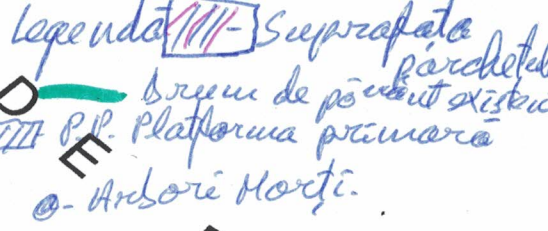 Legendă - Suprafața
parchetul
Drum de pământ existen
P.P. Platforma primară
- Arbori Morți.
D
E